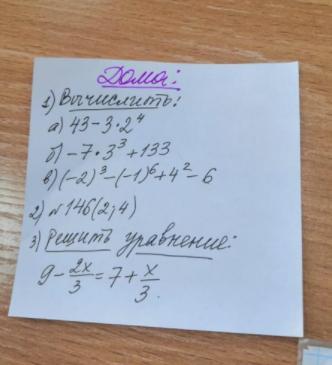 Дома:
1) Вычислить:
а) 43 - 3 · 2⁴
б) - 7 · 3³ + 133
в) (-2)³ - (-1)⁶ + 4² - 6
2) № 146 (2; 4)
3) Решить уравнение:
9 - 2x/3 = 7 + x/3.